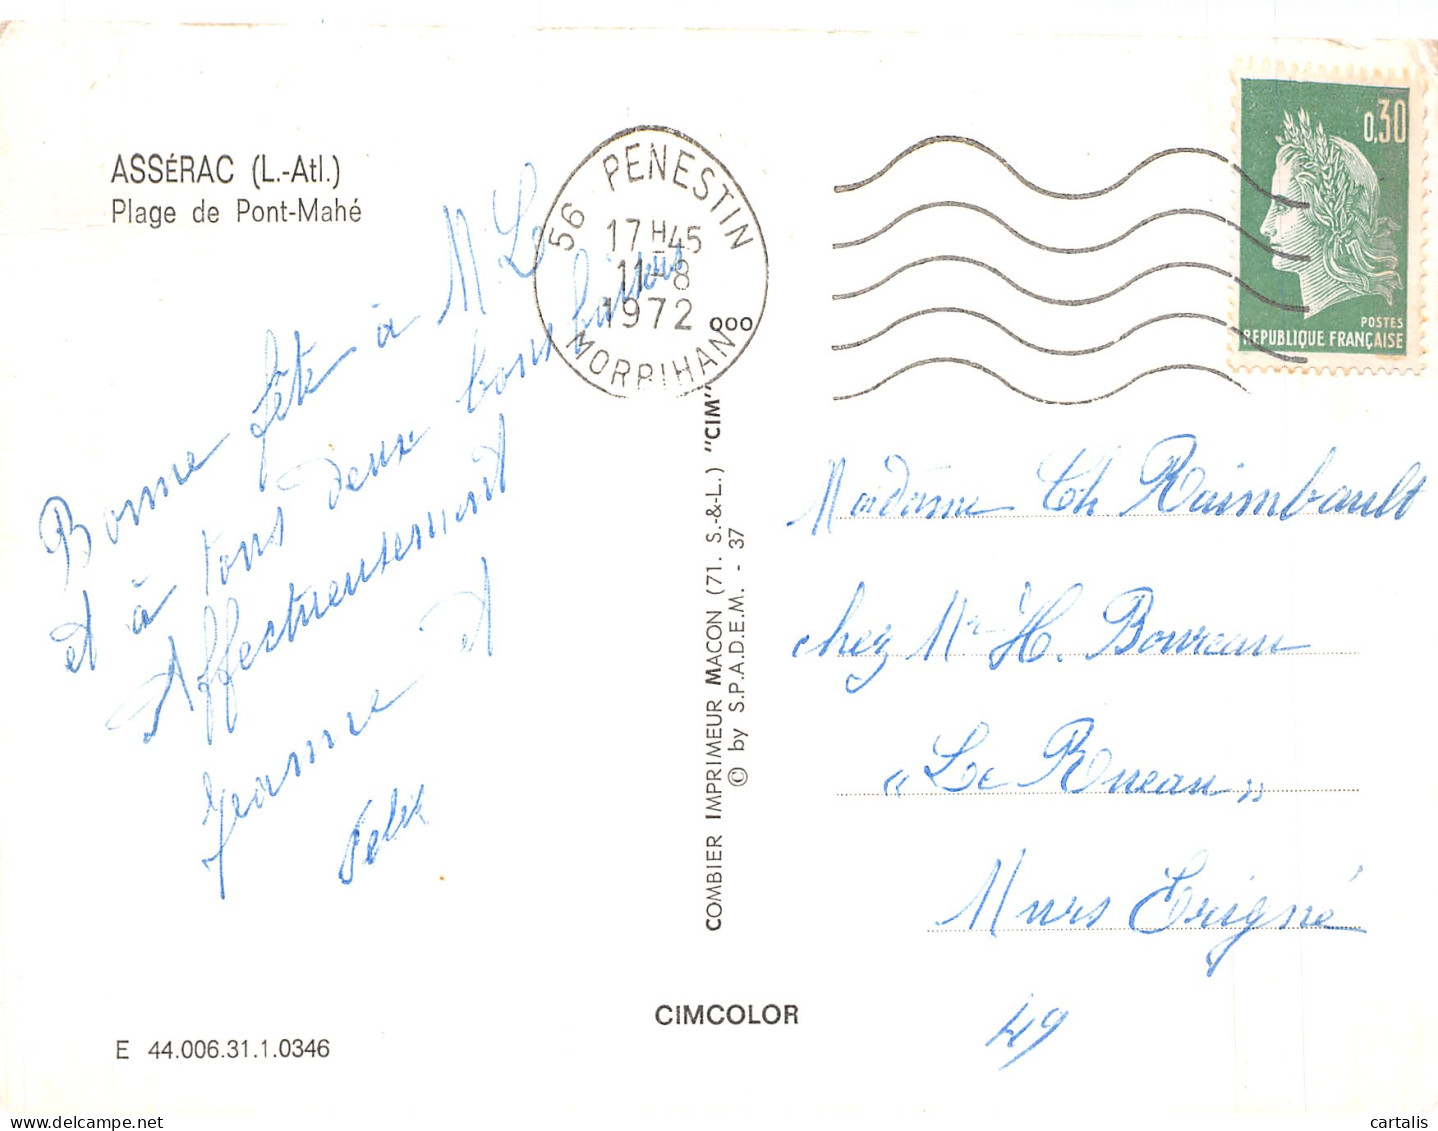 ASSÉRAC (L.-Atl.)
Plage de Pont-Mahé
Bonne fête à M L
et à tous deux bons baisers
Affectueusement
Jeanne et
Felix
56 PENESTIN
17 H 45
11-8
1972
MORBIHAN
0,30
POSTES
REPUBLIQUE FRANÇAISE
COMBIER IMPRIMEUR MACON (71. S.-&-L.) "CIM"
© by S.P.A.D.E.M. - 37
Madame Ch Raimbault
chez Mr H. Boureau
"Le Rueau"
Murs Erigné
49
CIMCOLOR
E 44.006.31.1.0346
cartalis